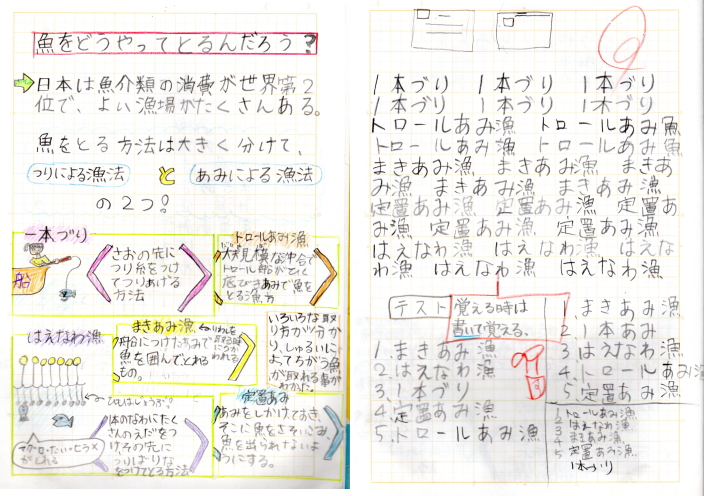 魚をどうやってとるんだろう?
日本は魚介類の消費が世界第2
位で、よい漁場がたくさんある。
魚をとる方法は大きく分けて、
つりによる漁法 と あみによる漁法
の2つ!
一本づり
船
さおの先に
つり糸をつけ
てつりあげる
方法
トロールあみ漁
大規模な沖合で
トロール船がとく
底びきあみで魚を
とる漁方
はえなわ漁
まきあみ漁
船につけたあみで
魚を囲んでとれる
もの。
いろいろな取
り方が分か
り、しゅるいに
よってちがう魚
が取れる事が
わかた。
体のなわにたく
さんのえだをつ
けその先に
つりばりな
をつけてとる方法
定置あみ
あみをしかけておき、
そこに魚をさそいこみ、
魚を出られないよ
うにする。
1本づり 1本づり 1本づり
1本づり 1本づり 1本づり
トロールあみ漁 トロールあみ漁
トロールあみ漁 トロールあみ漁
まきあみ漁 まきあみ漁 まきあ
み漁 まきあみ漁 まきあみ漁
定置あみ漁 定置あみ漁 定置あ
み漁 定置あみ漁 定置あみ漁
はえなわ漁 はえなわ漁 はえな
わ漁 はえなわ漁 はえなわ漁
テスト
覚える時は
書いて覚える。
1.まきあみ漁
2.はえなわ漁
3.1本づり
4.定置あみ漁
5.トロールあみ漁
1.まきあみ漁
2 1本あみ
3.はえなわ漁
4.トロールあみ漁
5.定置あみ漁
1 トロールあみ漁
2 はえなわ漁
3 まきあみ漁
4 定置あみ漁
5 1本づり